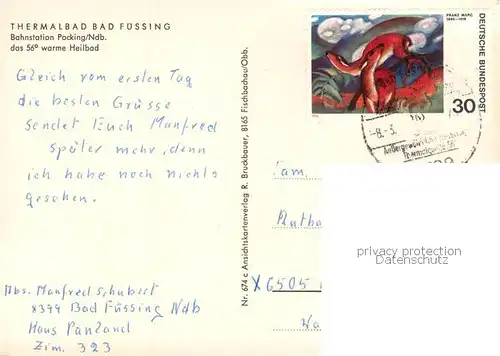 THERMALBAD BAD FÜSSING
Bahnstation Pocking/Ndb.
das 56° warme Heilbad
Gleich vom ersten Tag
die besten Grüsse
sendet Euch Manfred
später mehr, denn
ich habe noch nichts
gesehen.
Abs. Manfred Schubert
8399 Bad Füssing Ndb
Haus Panland
Zim. 323
Nr. 674 c Ansichtskartenverlag R. Bruckbauer, 8165 Fischbachau/Obb.
FRANZ MARC
1880-1916
DEUTSCHE BUNDESPOST
30
-8.-3.
Thermalquelle 56°
Fam.
X6505
privacy protection
Datenschutz